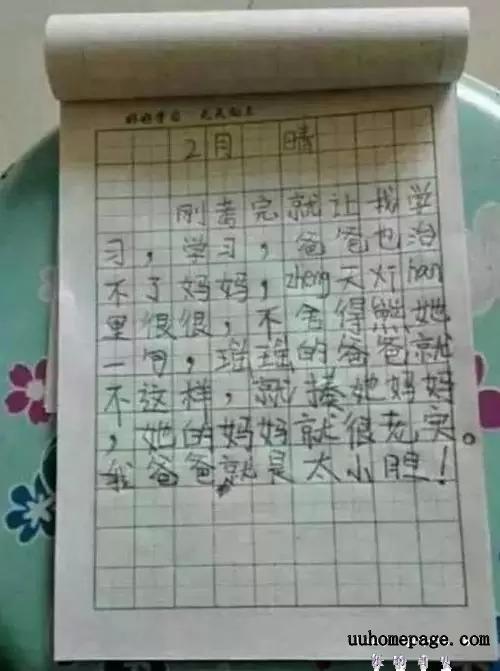 好好学习 天天向上
2月 晴
刚考完就让我学
习，学习，爸爸也治
不了妈妈，zheng天对han
里很很，不舍得熊她
一句，瑶瑶的爸爸就
不这样，就揍她妈妈
，她的妈妈就很老实。
我爸爸就是太小胆！
uuhomepage.com